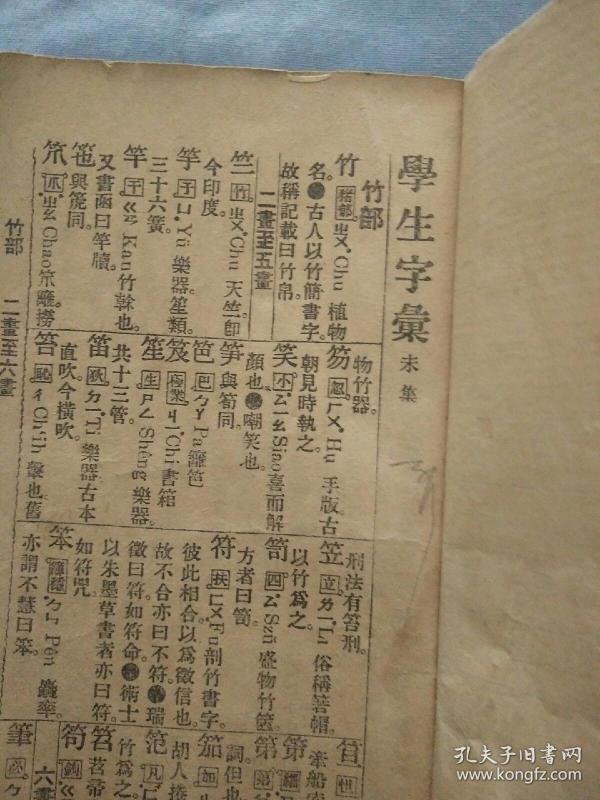 學生字彙 未集
竹部
竹 豬郁 ㄓㄨ. Chu 植物
名。●古人以竹簡書字。
故稱記載曰竹帛。
二畫至五畫
竺 竹 ㄓㄨ. Chu 天竺。卽
今印度。
竽 于 ㄩ. Yü 樂器。笙類
三十六簧。
竿 干 ㄍㄢ Kan 竹榦也。
又書函曰竿牘。
竾 與箎同。
笊 爪 ㄓㄠ Chao 笊籬。撈
物竹器。
笏 忽 ㄏㄨ. Hu 手版。古
朝見時執之。
笑 ㄙㄧㄠ Siao 喜而解
顏也。●嘲笑也。
笋 與筍同。
笆 巴 ㄅㄚ Pa 籬笆
笈 極業 ㄐㄧ. Chi 書箱
笙 生 ㄕㄥ Shêng 樂器。
共十三管。
笛 狄 ㄉㄧ. Ti 樂器。古本
直吹。今橫吹。
笞 ㄔ Ch‘ih 擊也。舊
刑法有笞刑。
笠 立 ㄌㄧ. Li 俗稱箬帽。
以竹爲之。
笥 四 ㄙ Szŭ 盛物竹篋。
方者曰笥。
符 扶 ㄈㄨ Fu 剖竹書字。
彼此相合以爲徵信也。
故不合亦曰不符。●瑞
徵曰符。如符命。●術士
以朱墨草書者亦曰符。
如符咒。
笨 ㄅㄣ Pên 麤率。
亦謂不慧曰笨。
笪 怛
牽船
第
第
詞但也
笳 加
胡人捲
范 凡 ㄈ
竹爲之。
笤 苕帚
筍 鉤 ㄍ
六畫
筆 ㄅ
竹部 二畫至六畫
孔夫子旧书网
www.kongfz.com